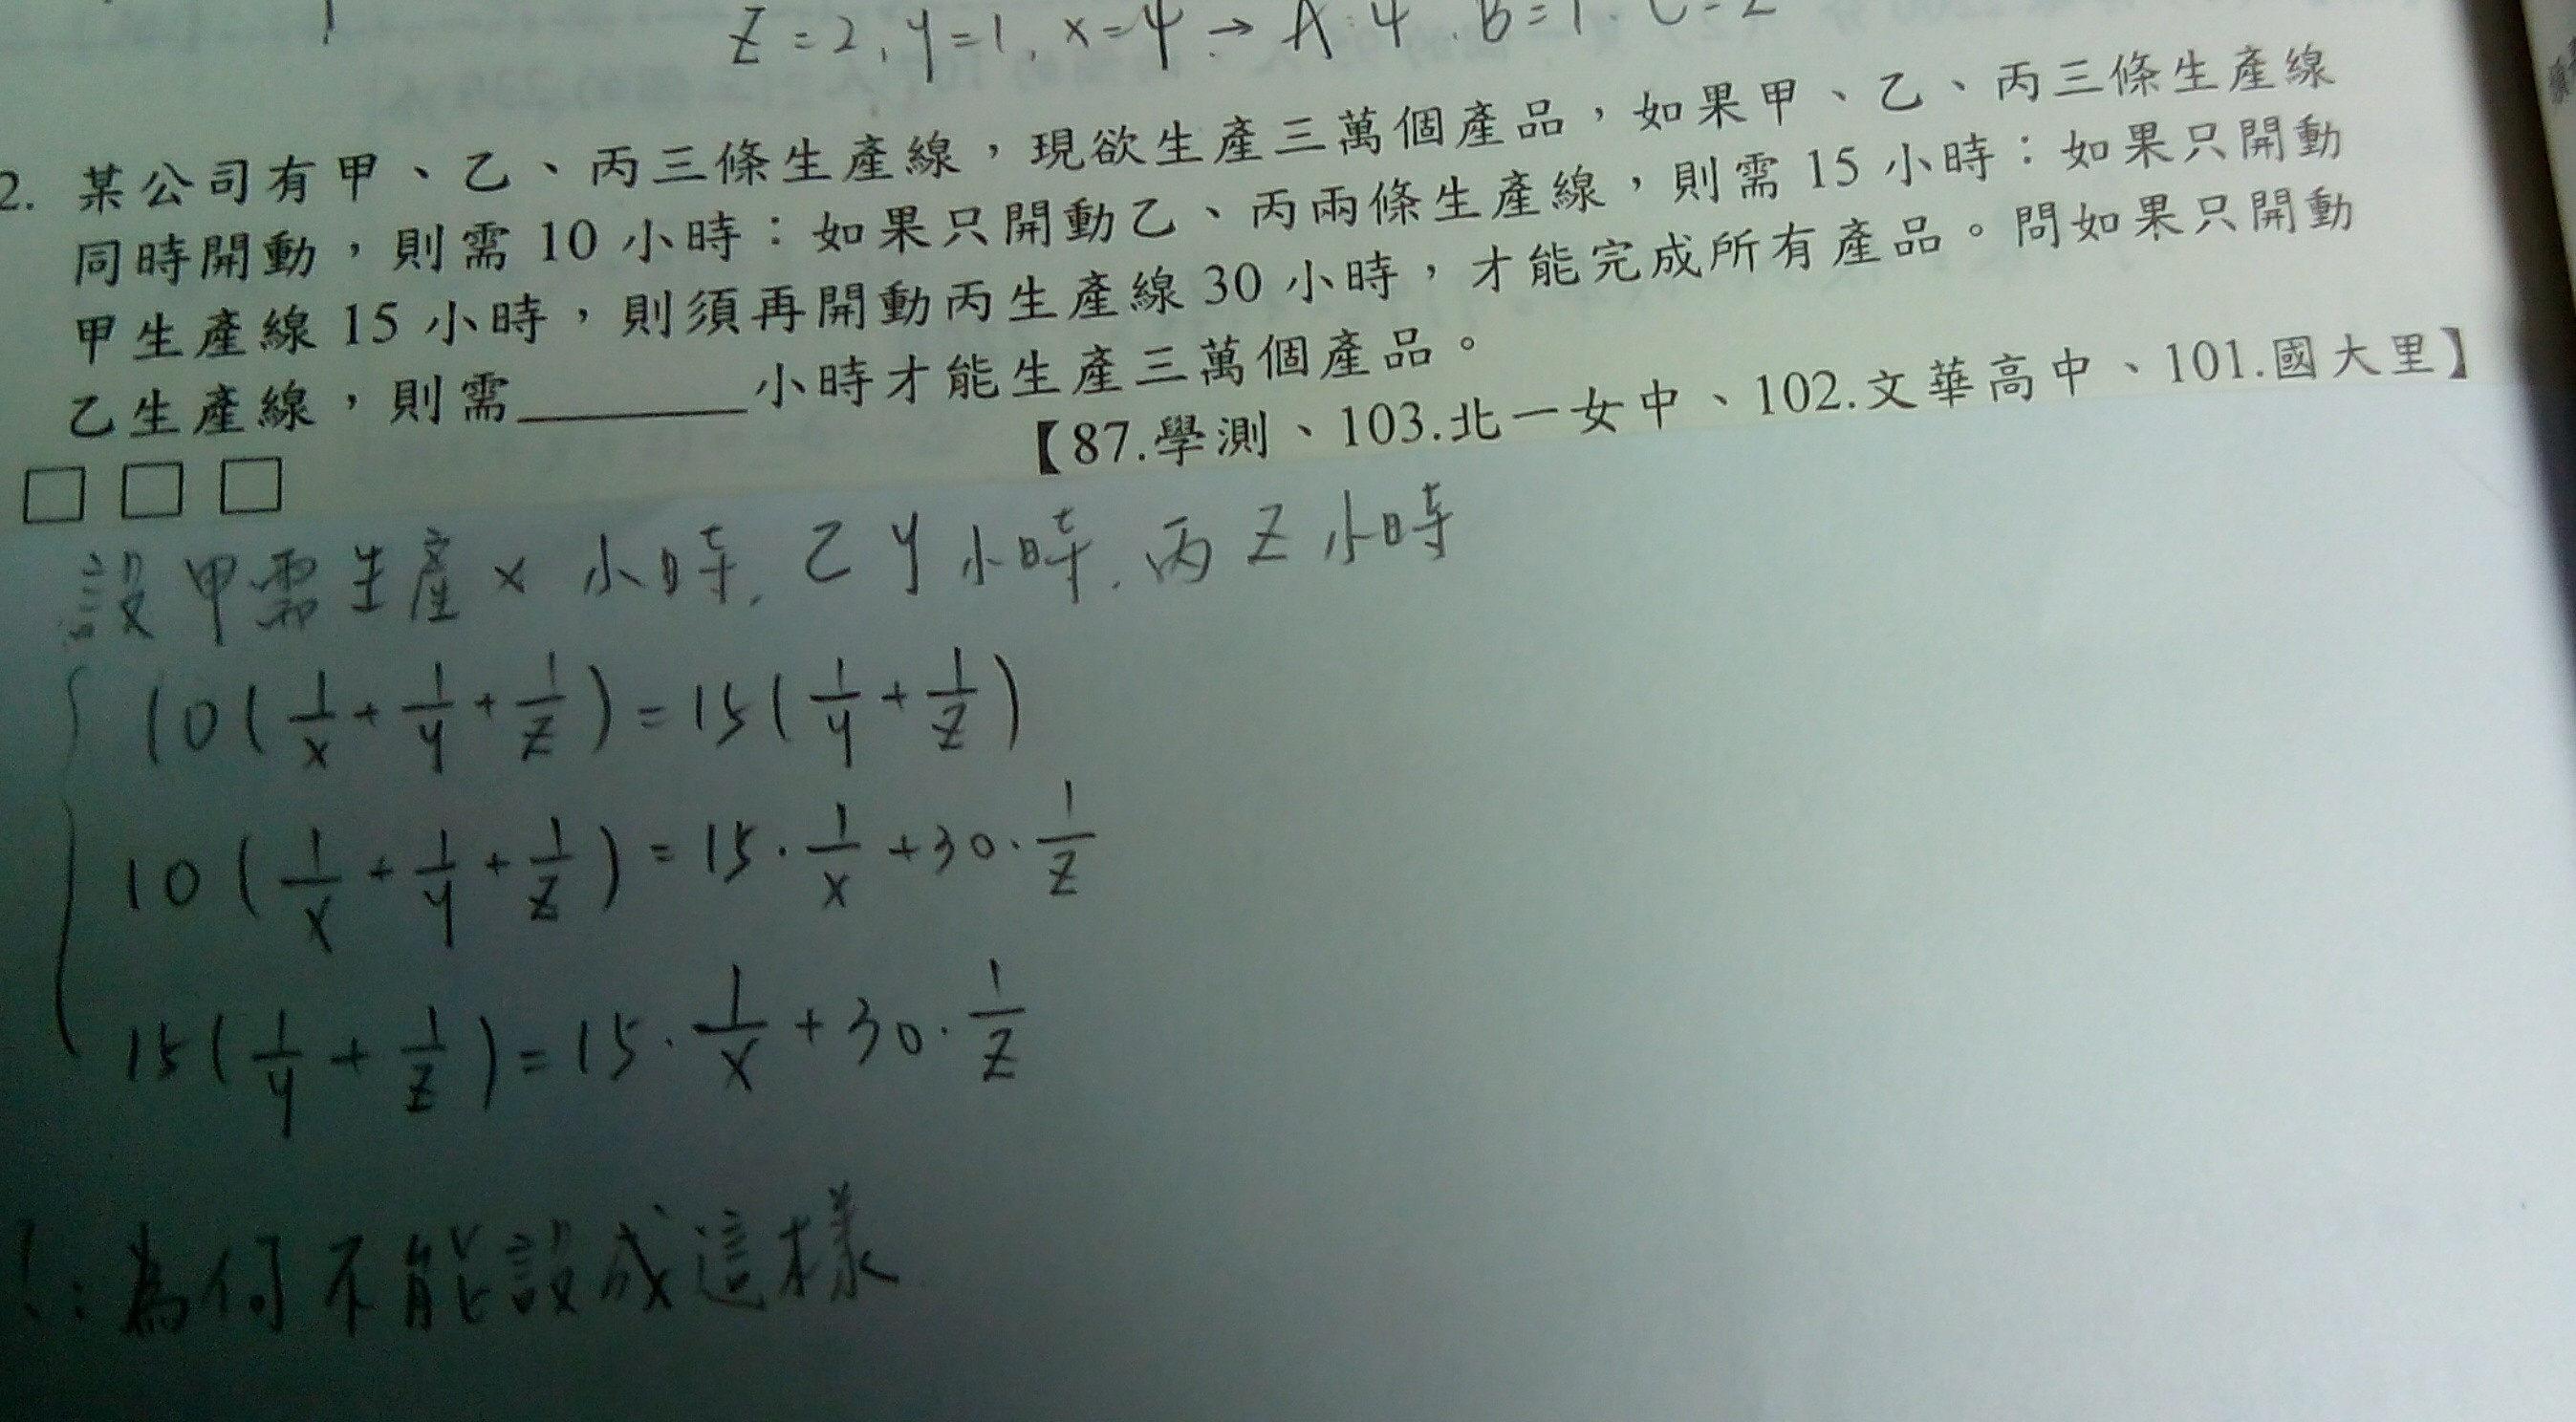 Z=2, y=1, x=4 → A=4, B=1, C=2
2. 某公司有甲、乙、丙三條生產線，現欲生產三萬個產品，如果甲、乙、丙三條生產線
同時開動，則需 10 小時：如果只開動乙、丙兩條生產線，則需 15 小時：如果只開動
甲生產線 15 小時，則須再開動丙生產線 30 小時，才能完成所有產品。問如果只開動
乙生產線，則需________小時才能生產三萬個產品。
【87.學測、103.北一女中、102.文華高中、101.國大里】
□ □ □
設甲需生產 x 小時, 乙 y 小時, 丙 Z 小時
10(1/x + 1/y + 1/z) = 15(1/y + 1/z)
10(1/x + 1/y + 1/z) = 15·1/x + 30·1/z
15(1/y + 1/z) = 15·1/x + 30·1/z
為何不能設成這樣